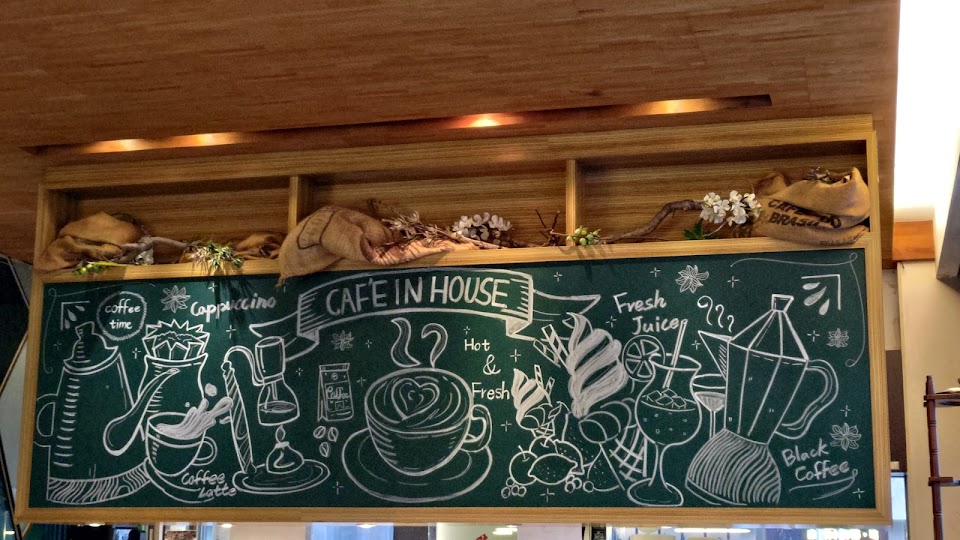 CAFE
BRASIL
CAF'E IN HOUSE
coffee
time
Cappuccino
Hot
&
Fresh
Fresh
Juice
Coffee
Coffee
Latte
Black
Coffee